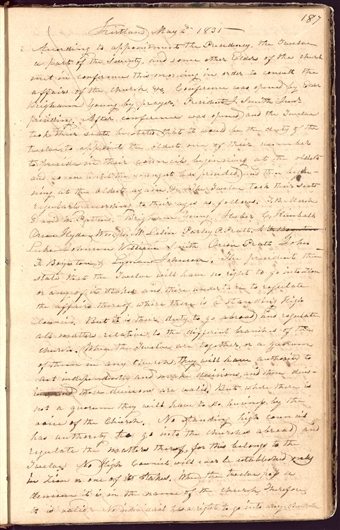 187
Kirtland May 2d 1835
According to appointment the Presidency, the Twelve
a part of the Seventy, and some other Elders of the church
met in conference this morning in order to consult the
affairs of the church &c. Conference was opened by Elder
Brigham Young by prayer, President J. Smith Junr
presiding. After conference was opened and the Twelve
took their seats, he stated, that it would be the duty of the
twelve to appoint the oldest one of their number
to preside in their councils, beginning at the oldest
and so on until the youngest has presided and then begin-
ning at the oldest again &c. The Twelve took their seats
regularly according to their ages as follows. T. B. Marsh
D. W. Patten, Brigham Young, Heber C. Kimball
Orson Hyde, Wm. E. McLelin Parley P. Pratt,
Luke Johnson William Smith Orson Pratt, John
F. Boynton & Lyman Johnson. The president then
state that the Twelve will have no right to go into Zion
or any of its stakes and there undertake to regulate
the affairs thereof where there is a standing high
Council. But it is their duty to go abroad and regulate
all matters relative to the different branches of the
church. When the Twelve are together, or a quorum
of them in any church, they will have authority to
act independently and make decisions, and those
decisions are valid. But where there is
not a quorum they will have to do business by the
voice of the Church. No Standing high Council
has authority to go into the churches abroad and
regulate the matters thereof, for this belongs to the
Twelve. No High Council will ever be established only
in Zion or one of its Stakes. When the twelve pass a
decision it is in the name of the church, Therefore
it is valid. No has a right to go into any church